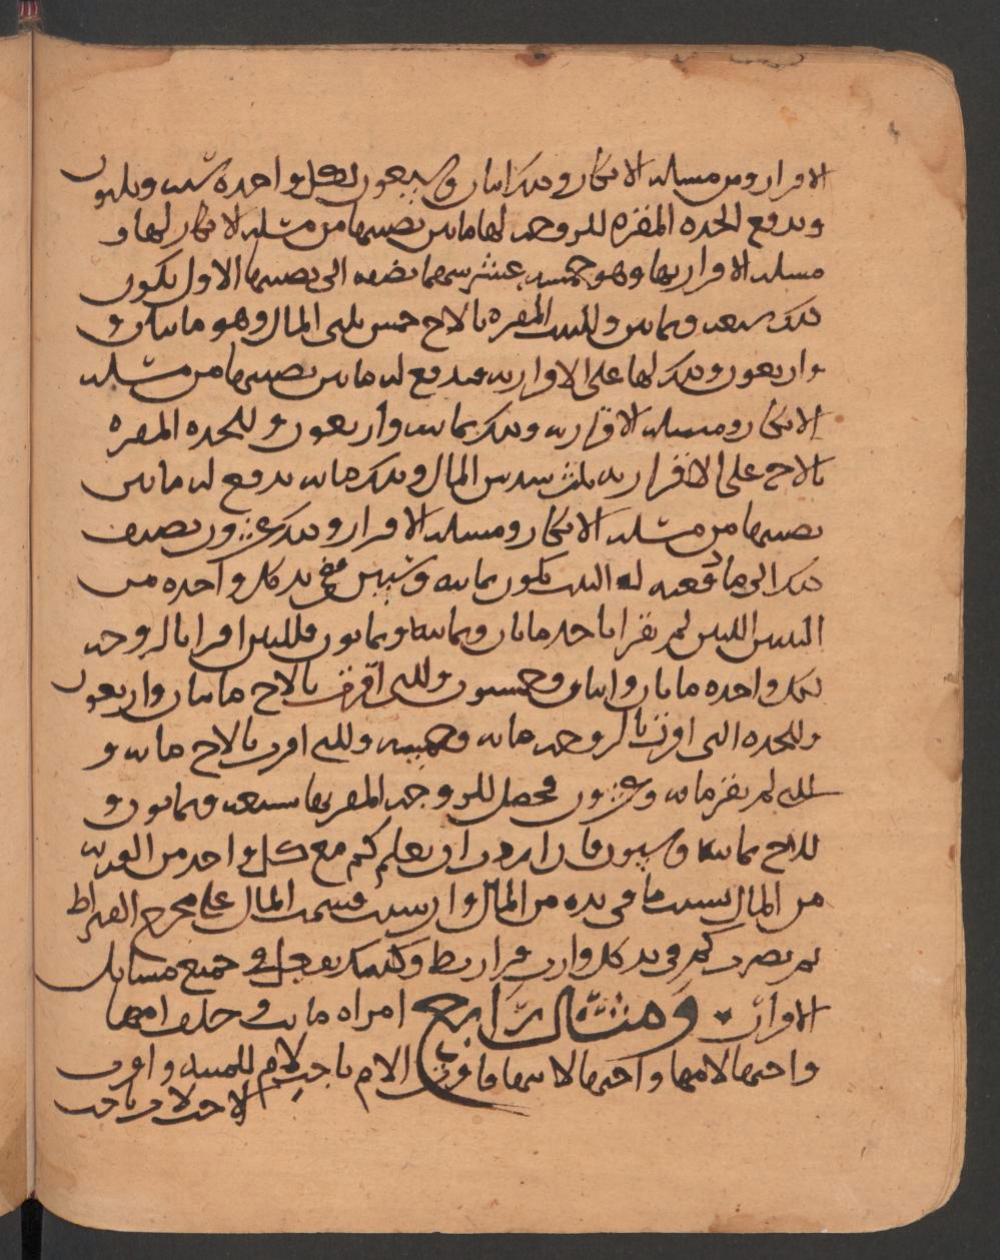 الاقرار ومن مسله الانكار وذلك اثنان وسبعون لكل واحده سته وثلثون
وتدفع الجده المقره للزوجه لها ما بين نصيبها من مسله الانكار لها و
مسله الاقرار بها وهو خمسه عشر سهما تضفه الى نصيبها الاول يكون
ذلك سبعه وثمانين وللبنت المقره بالاخ خمس ثلثي المال وهو مائتان و
واربعون وذلك لها على الاقرار به فتدفع له ما بين نصيبها من مسله
الانكار ومسله الاقرار به وذلك ثمانيه واربعون وللجده المقره
بالاخ على الاقرار به ثلث سدس المال وذلك مايه تدفع له ما بين
نصيبها من مسله الانكار ومسله الاقرار وذلك عشرون تضيف
ذلك الى ما دفعته له البنت يكون ثمانيه وستين فيبقى في يد كل واحده من
البنتين اللتين لم تقرا باحد مايتان وثمانيه وثمانون وللتين اقرتا بالزوجه
لكل واحده مايتان واثنان وخمسون وللتي اقرت بالاخ مايتان واربعون
وللجده التي اقرت بالزوجه مايه وخمسه وللتي اقرت بالاخ مايه و
للتي لم تقر مايه وعشرون فحصل للزوجه المقر بها سبعه وثمانون و
للاخ ثمانيه وستون فان اردت ان تعلم كم مع كل واحد من الورثه
من المال نسبت ما في يده من المال وان شئت قسمت المال على مخرج القيراط
ثم نصرت كم في يد كل وارث قراريط وكذلك تفعل في جميع مسائل
الاقرار ومثال رابع امراه ماتت وخلفت امها
واختها لامها واختها لابيها فاقرت الام باخت لام للميته واقرت
الاخت لام باخت